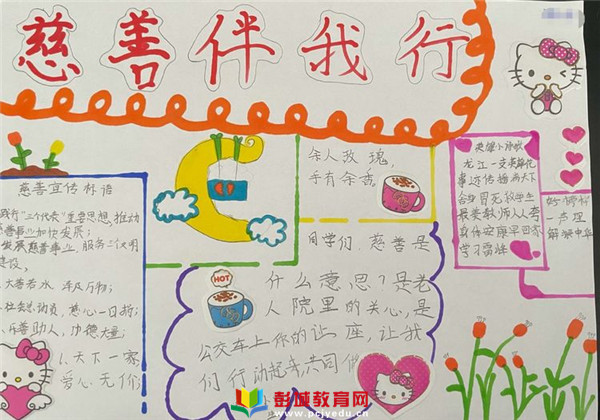 慈善伴我行
慈善宣传标语
践行"三个代表"重要思想,推动
慈善事业加快发展;
发展慈善事业,服务三个文明
建设。
大善若水 泽及万物;
社会总动员,慈心一日捐;
乐善助人,功德大量;
天下一家,
爱心无价
余人玫瑰,
手有余香。
同学们,慈善是
什么意思?是老
人院里的关心,是
公交车上你的让座,让我
们行动起来,共同
HOT
英雄小咏歌
龙江一支英雄花
事迹传播两天下
舍身冒死救学生
最美教师人人夸
身体安康早回家
学习雷锋
一声理
解
彭城教育网
www.pcjyedu.cn